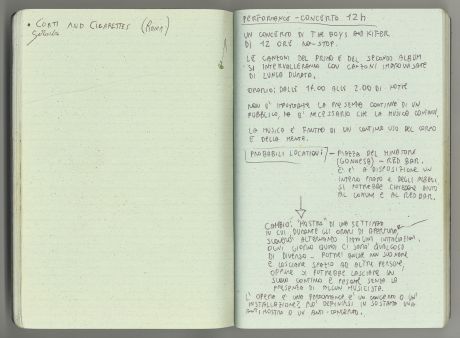 • CORTI AND CIGARETTES (ROMA)
PERFORMANCE - CONCERTO 12h
UN CONCERTO DI THE BOYS AND KIFER
DI 12 ORE NO-STOP.
LE CANZONI DEL PRIMO E DEL SECONDO ALBUM
SI INTERVALLERANNO CON CANZONI IMPROVVISATE
DI LUNGA DURATA.
ORARIO: DALLE 14.00 ALLE 2.00 DI NOTTE
NON E' IMPORTANTE LA PRESENZA CONTINUA DI UN
PUBBLICO, MA E' NECESSARIO CHE LA MUSICA CONTINUI.
LA MUSICA E' FRUTTO DI UN CONTINUO USO DEL CORPO
E DELLA MENTE.
PROBABILI LOCATION: - PIAZZA DEL MINATORE
(GONNESA) - RED BAR.
C'E' A DISPOSIZIONE UN
INTERO PRATO E DEGLI ALBERI.
SI POTREBBE CHIEDERE AIUTO
AL COMUNE E AL RED BAR.
CAMBIO: "MOSTRA" DI UNA SETTIMANA
IN CUI, DURANTE GLI ORARI DI APERTURA,
SUONO ALTERNANDO
OGNI GIORNO QUINDI CI SARA' QUALCOSA
DI DIVERSO - POTREI ANCHE NON SUONARE
E LASCIARE SPAZIO AD ALTRE PERSONE,
OPPURE SI POTREBBE LASCIARE UN
SUONO CONTINUO E PESARE SENZA LA
PRESENZA DI ALCUN MUSICISTA.
L'OPERA E' UNA PERFORMANCE E UN CONCERTO O UN'
INSTALLAZIONE? PUO' DEFINIRSI IN SOSTANZA UNA
ANTI MOSTRA O UN ANTI-CONCERTO.